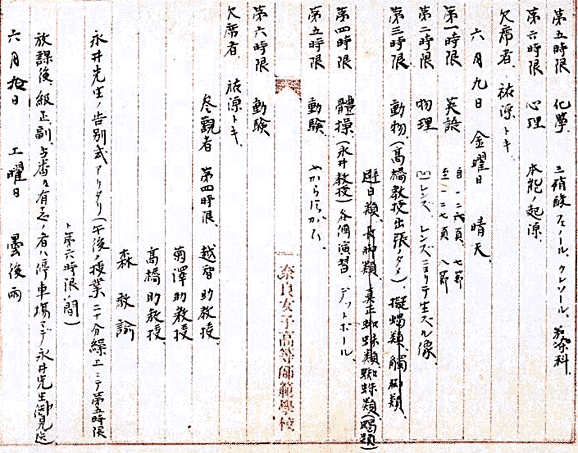 第五時限 化學 三硝酸フエノール、クレソール、
第六時限 心理 本能ノ起源
欠席者 祐源トキ
六月九日 金曜日 晴天
第一時限 英語 自一二六頁、七節
至一二七頁 八節
第二時限 物理 凹レンズ、レンズニヨリテ生ズル像
第三時限 動物(高橋教授出張ノタメ)擬蝎類、觸脚類
避日類、長脚類、真正蜘蛛類、蜘蛛類(蝎類)
第四時限 體操(永井教授)各個演習、デットボール
第五時限 動験 やからにかひ
第六時限 動験
欠席者 祐源トキ
参觀者 第四時限、越智助教授
菊澤助教授
高橋助教授
森 教諭
永井先生ノ告別式アリタリ(午後ノ授業二十分繰上ニテ第五時限
ト第六時限ノ間)
放課後、級正副、当番、有志ノ者ハ停車場マデ永井先生御見送
六月拾日 土曜日 曇後雨
奈良女子高等師範學校